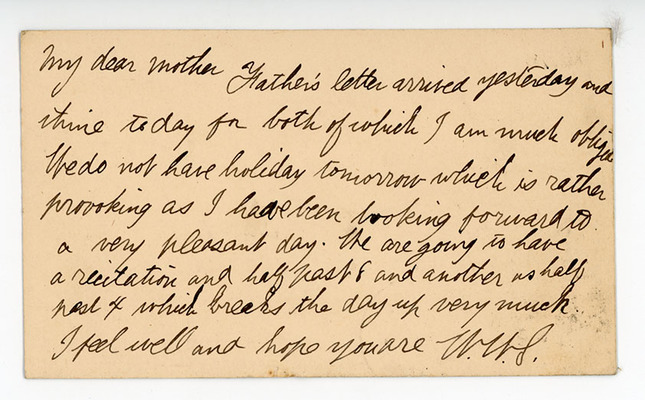 My dear mother Father's letter arrived yesterday and
thine today for both of which I am much oblige
We do not have holiday tomorrow which is rather
provoking as I have been looking forward to
a very pleasant day. We are going to have
a recitation and half past 8 and another as half
past 4 which breaks the day up very much
I feel well and hope you are W.W.J.